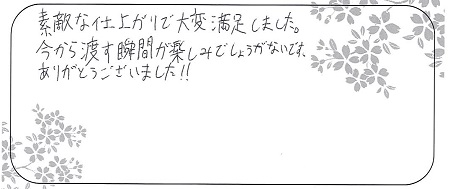 素敵な仕上がりで大変満足しました。
今から渡す瞬間が楽しみでしょうがないです、
ありがとうございました!!